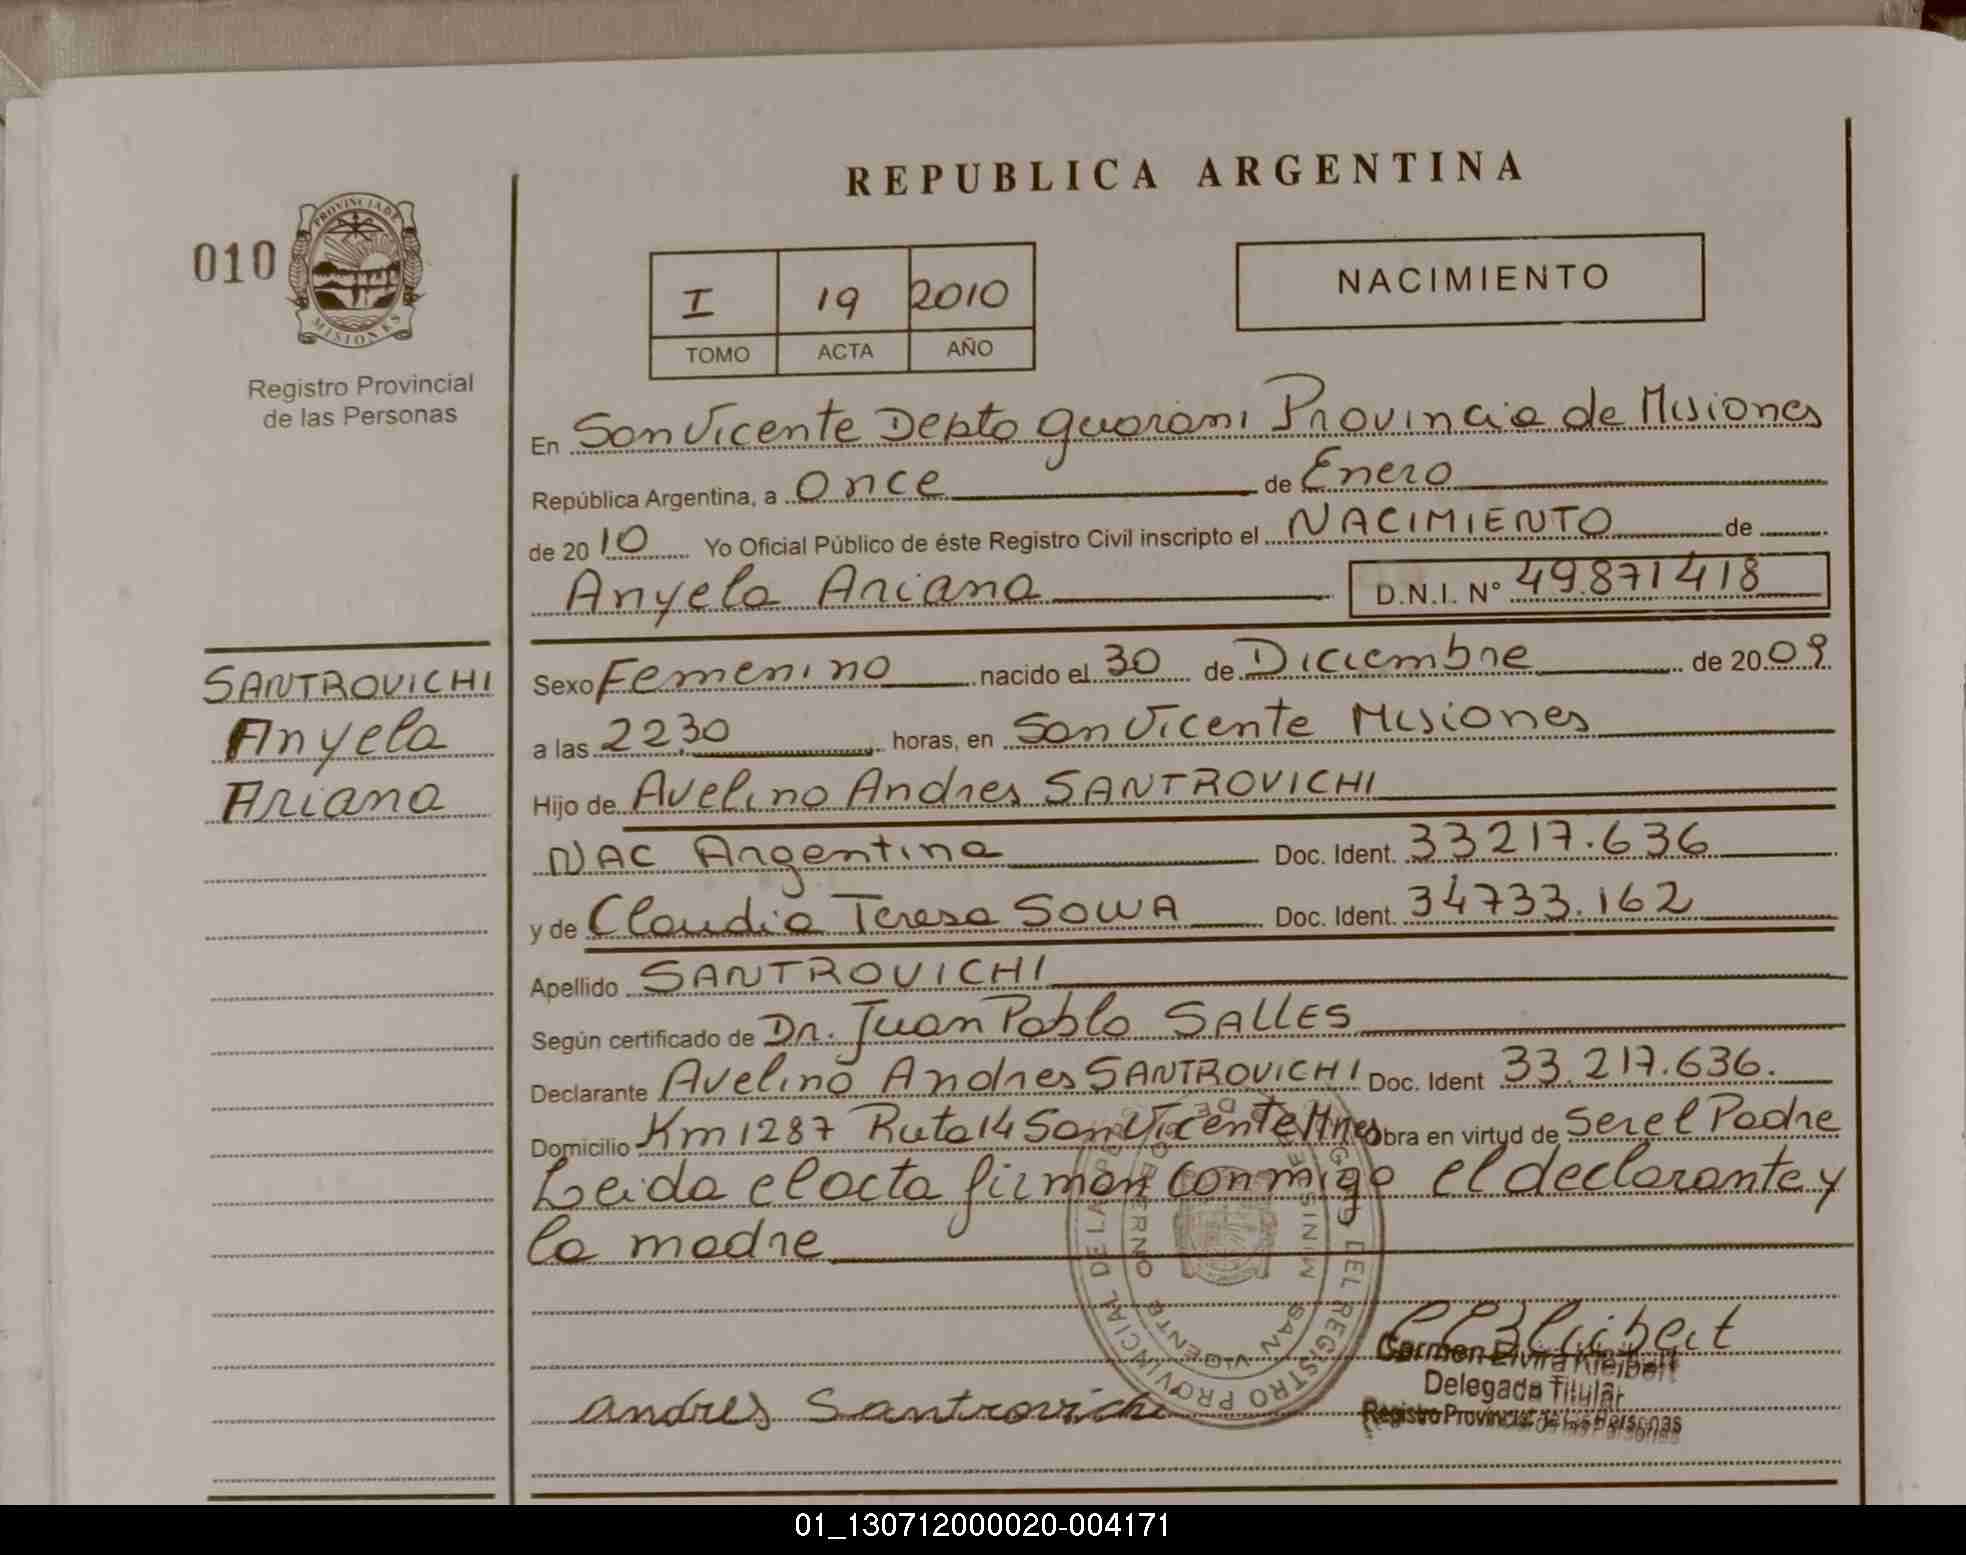 REPUBLICA ARGENTINA
010
PROVINCIA DE MISIONES
Registro Provincial
de las Personas
I 19 2010
TOMO ACTA AÑO
NACIMIENTO
En San Vicente Depto guarani Provincia de Misiones
República Argentina, a once de Enero
de 2010 Yo Oficial Público de éste Registro Civil inscripto el NACIMIENTO de
Anyela Ariana D.N.I. N° 49.871418
SANTROVICHI
Anyela
Ariana
Sexo Femenino nacido el 30 de Diciembre de 2009
a las 22,30 horas, en San Vicente Misiones
Hijo de Avelino Andres SANTROVICHI
NAC Argentina Doc. Ident. 33217.636
y de Claudia Teresa SOWA Doc. Ident. 34733.162
Apellido SANTROVICHI
Según certificado de Dr. Juan Pablo SALLES
Declarante Avelino Andres SANTROVICHI Doc. Ident 33.217.636.
Domicilio Km 1287 Ruta 14 San Vicente Mnes Obra en virtud de Ser el Padre
Leida el acta firman conmigo el declarante y
la madre
andres Santrovichi
Carmen Elvira Kleibert
Delegada Titular
Registro Provincial de las Personas
SAN VICENTE
01_130712000020-004171